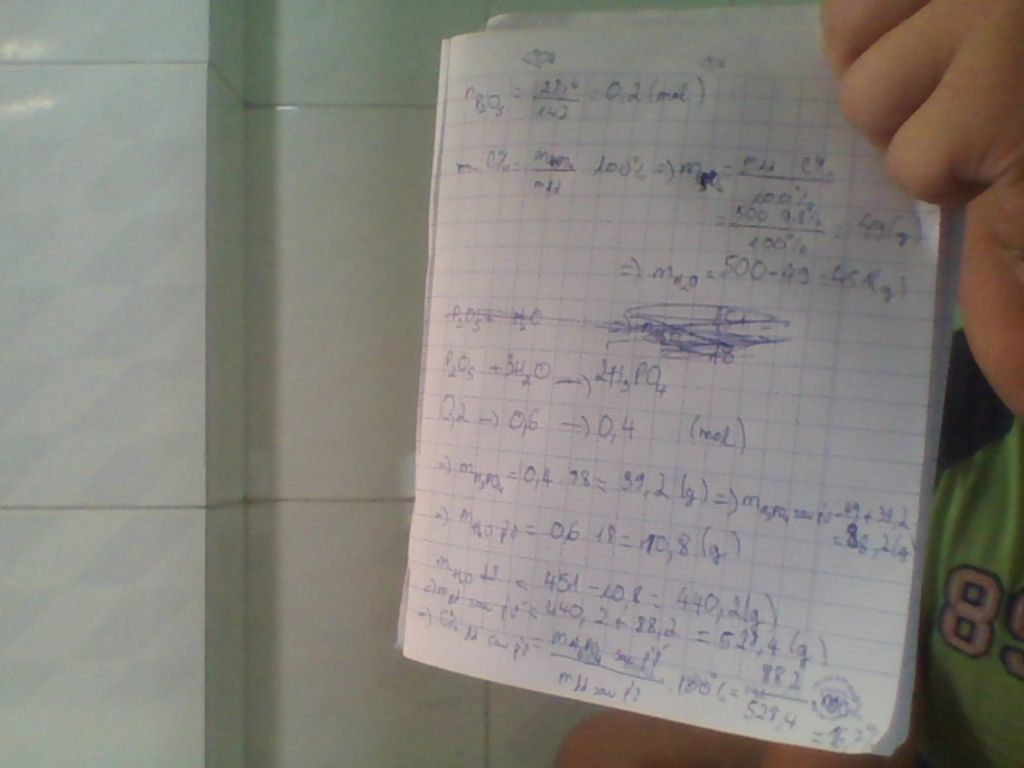 n P₂O₅ = 28,4 / 142 = 0,2 (mol)
C% = / mdd . 100% => m = mdd . C% / 100%
= 500 . 9,8% / 100% = 49 (g)
=> m H₂O = 500 - 49 = 451 (g)
P₂O₅ + H₂O
P₂O₅ + 3H₂O -> 2H₃PO₄
0,2 -> 0,6 -> 0,4 (mol)
=> m H₃PO₄ = 0,4 . 98 = 39,2 (g) => m H₃PO₄ sau p/ứ = 49 + 39,2
= 88,2 (g)
=> m H₂O p/ứ = 0,6 . 18 = 10,8 (g)
m H₂O = 451 - 10,8 = 440,2 (g)
=> mdd sau p/ứ = 440,2 + 88,2 = 528,4 (g)
=> C% dd sau p/ứ = m H₃PO₄ sau p/ứ / mdd sau p/ứ . 100% = 88,2 / 528,4
89